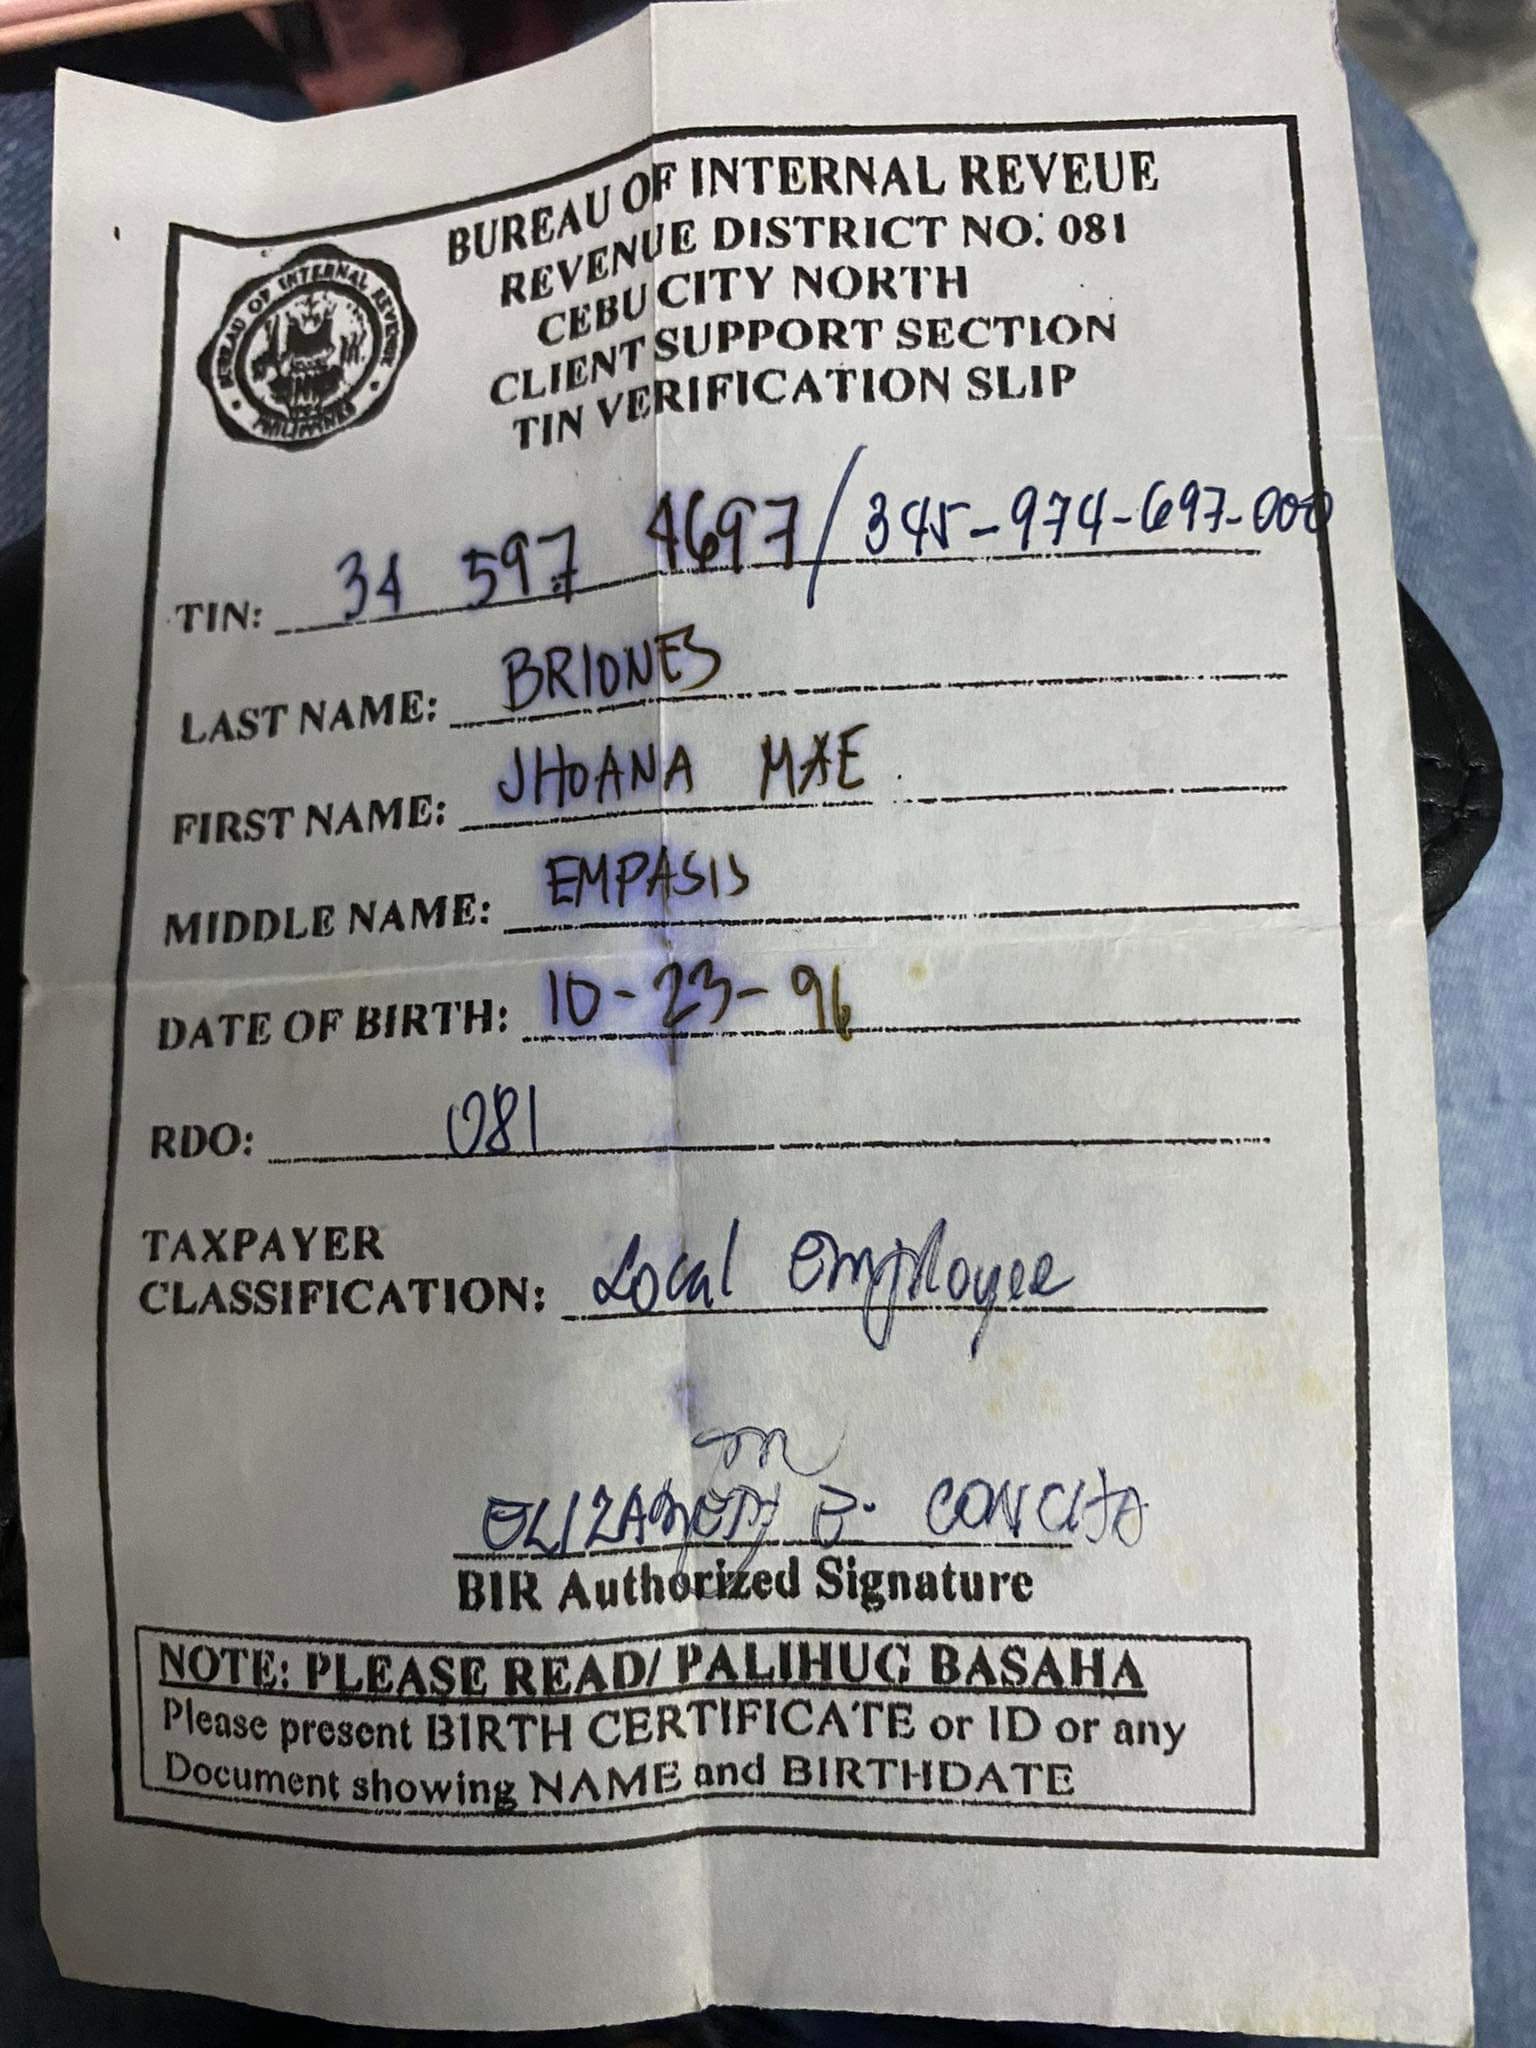 BUREAU OF INTERNAL REVEUE
REVENUE DISTRICT NO. 081
CEBU CITY NORTH
CLIENT SUPPORT SECTION
TIN VERIFICATION SLIP
BUREAU OF INTERNAL REVENUE
PHILIPPINES
TIN: 34 597 4697 / 345-974-697-000
LAST NAME: BRIONES
FIRST NAME: JHOANA MAE
MIDDLE NAME: EMPASIS
DATE OF BIRTH: 10-23-96
RDO: 081
TAXPAYER
CLASSIFICATION: Local Employee
B.
BIR Authorized Signature
NOTE: PLEASE READ/ PALIHUG BASAHA
Please present BIRTH CERTIFICATE or ID or any
Document showing NAME and BIRTHDATE